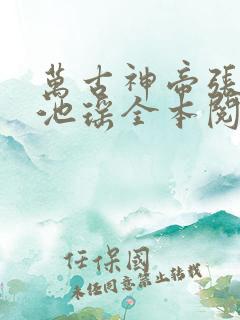 萬古神帝張
池瑤全本閱
任保國
未经同意禁止转载